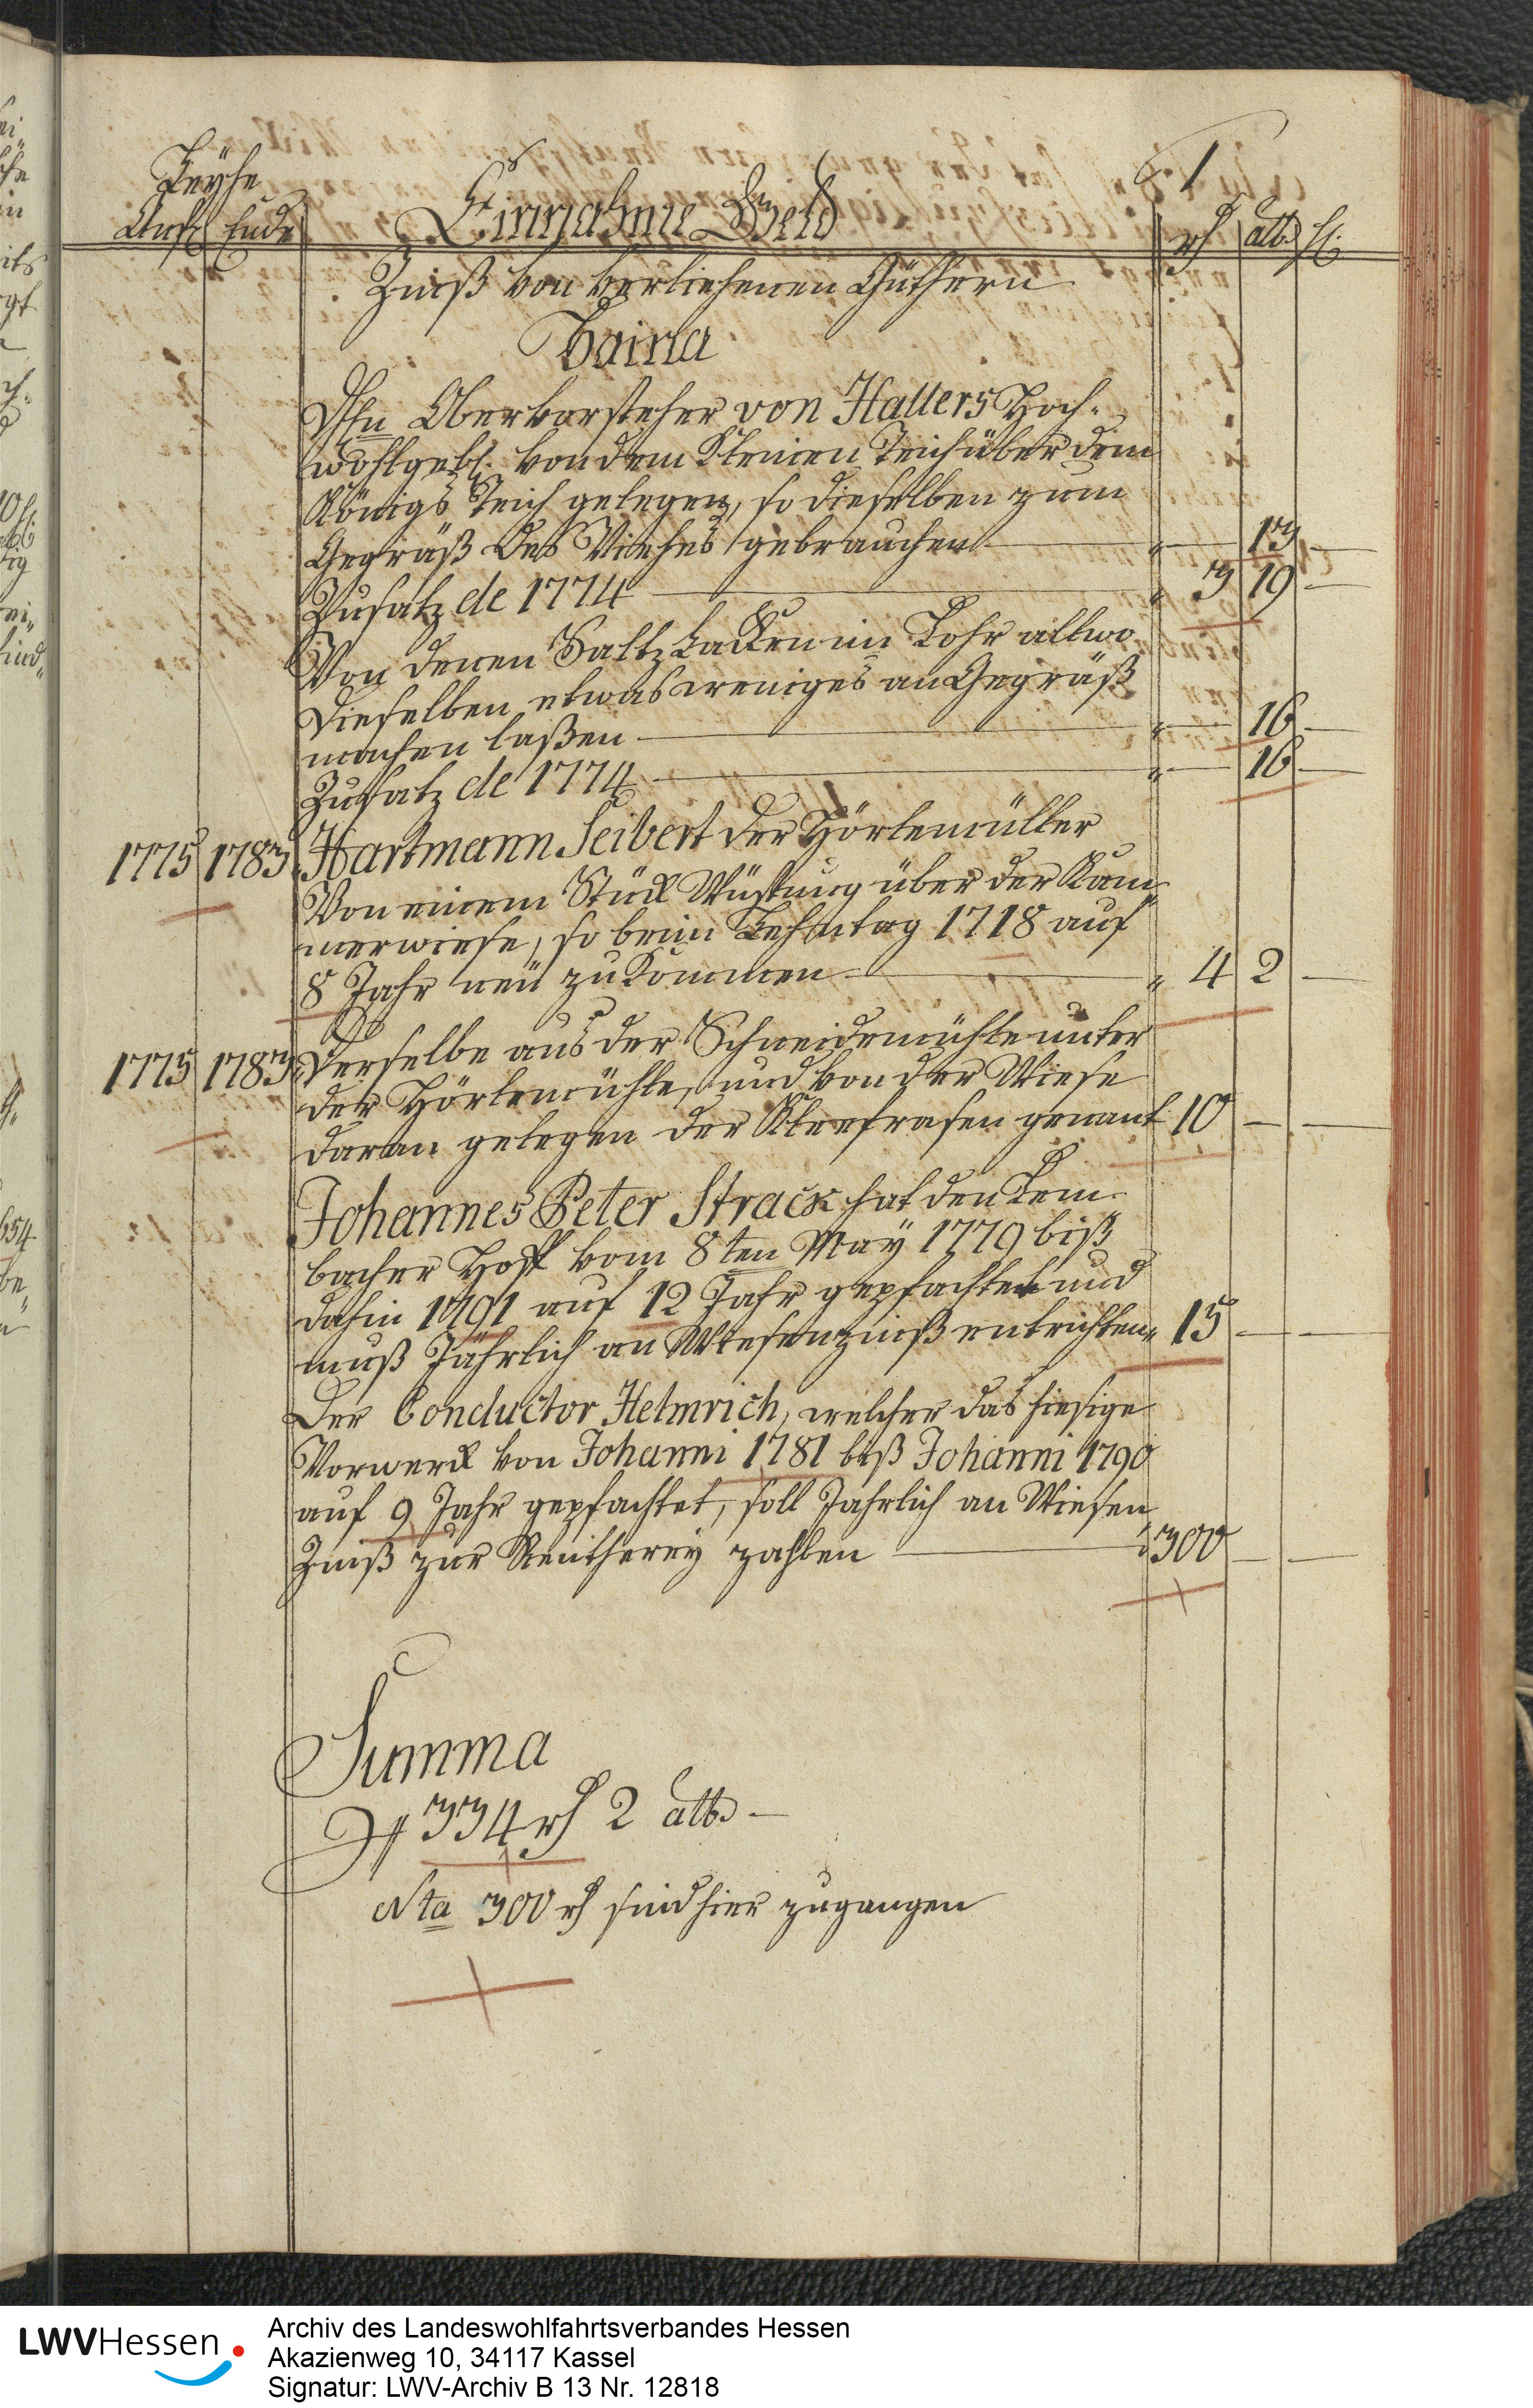 1
Leyhe
Anf. Ende
Einnahme Geld
rh alb hl.
Zinß von verliehenen Güthern
Haina
Hrn Obervorsteher von Hallers Hoch-
wohlgebl. von dem kleinen Teich über dem
Königs Teich gelegen, so dieselben zum
Gegräß des Viehes gebrauchen — 13 —
Zusatz de 1774 — 3 19 —
Von denen Saltz Lacken im Lohr allwo
dieselben etwas weniges an Gegräß
machen laßen — 16 —
Zusatz de 1774 — 16 —
1775 1783 Hartmann Seibert der Hörlemüller
Von einem Stück Wüstung über der Kam-
merwiese, so beim Lehntag 1718 auf
8 Jahr neu zukommen — 4 2 —
1775 1783 Derselbe aus der Schneidemühle unter
der Hörlemühle, und von der Wiese
daran gelegen der Kleefrasen genant 10 — —
Johannes Peter Strack hat den Lem-
bacher Hoff vom 8ten May 1779 biß
dahin 1791 auf 12 Jahr gepfachtet und
muß Jährlich an Wiesenzinß entrichten 15 — —
Der Conductor Helmrich, welcher das hiesige
Vorwerck von Johanni 1781 biß Johanni 1790
auf 9 Jahr gepfachtet, soll Jährlich an Wiesen
Zinß zur Rentherey zahlen — 300 — —
Summa
334 rh 2 alb —
Nta 300 rh sind hier zugangen
LWVHessen
Archiv des Landeswohlfahrtsverbandes Hessen
Akazienweg 10, 34117 Kassel
Signatur: LWV-Archiv B 13 Nr. 12818